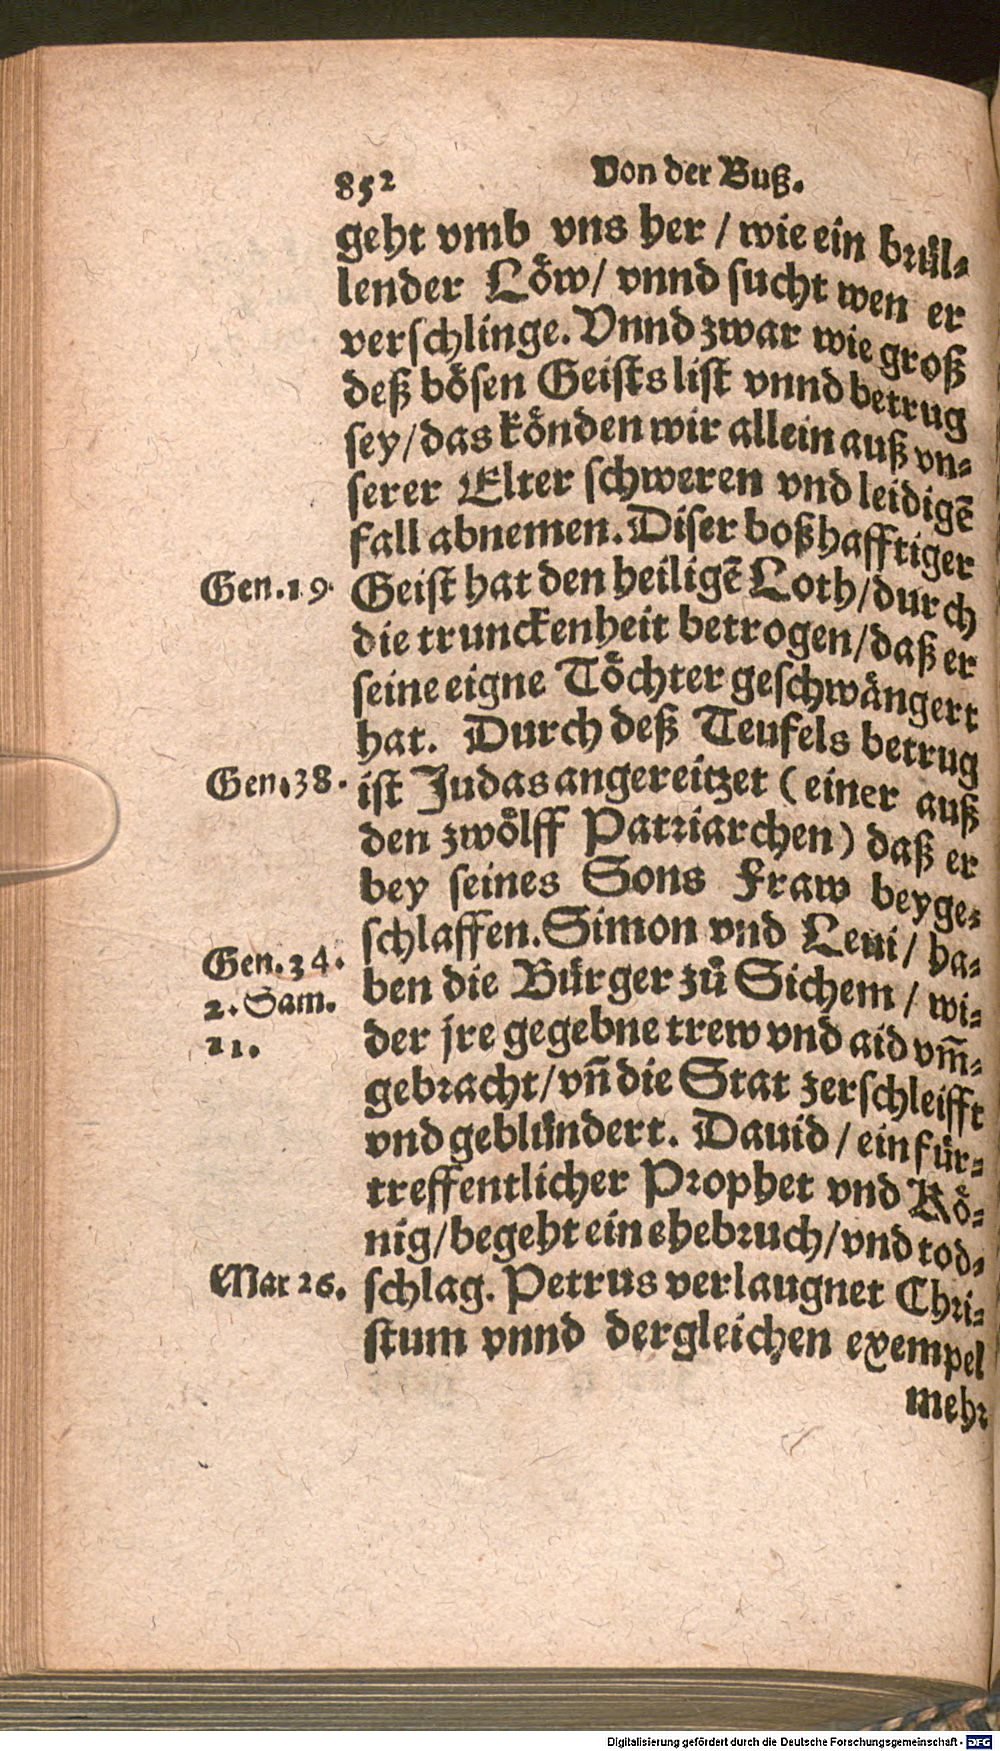 852 Von der Buß.
geht vmb vns her / wie ein brül-
lender Löw / vnnd sucht wen er
verschlinge. Vnnd zwar wie groß
deß bösen Geists list vnnd betrug
sey / das könden wir allein auß vn-
serer Elter schweren vnd leidigē
fall abnemen. Diser boßhafftiger
Gen. 19. Geist hat den heiligē Loth / durch
die trunckenheit betrogen / daß er
seine eigne Töchter geschwängert
hat. Durch deß Teufels betrug
Gen. 38. ist Judas angereitzet ( einer auß
den zwölff Patriarchen ) daß er
bey seines Sons Fraw beyge-
schlaffen. Simon vnd Leui / ha-
Gen. 34. ben die Bürger zů Sichem / wi-
2. Sam. der jre gegebne trew vnd aid vm̄-
11. gebracht / vn̄ die Stat zerschleifft
vnd geblündert. Dauid / ein für-
treffentlicher Prophet vnd Kö-
nig / begeht ein ehebruch / vnd tod-
Mar 26. schlag. Petrus verlaugnet Chri-
stum vnnd dergleichen exempel
mehr
Digitalisierung gefördert durch die Deutsche Forschungsgemeinschaft - DFG